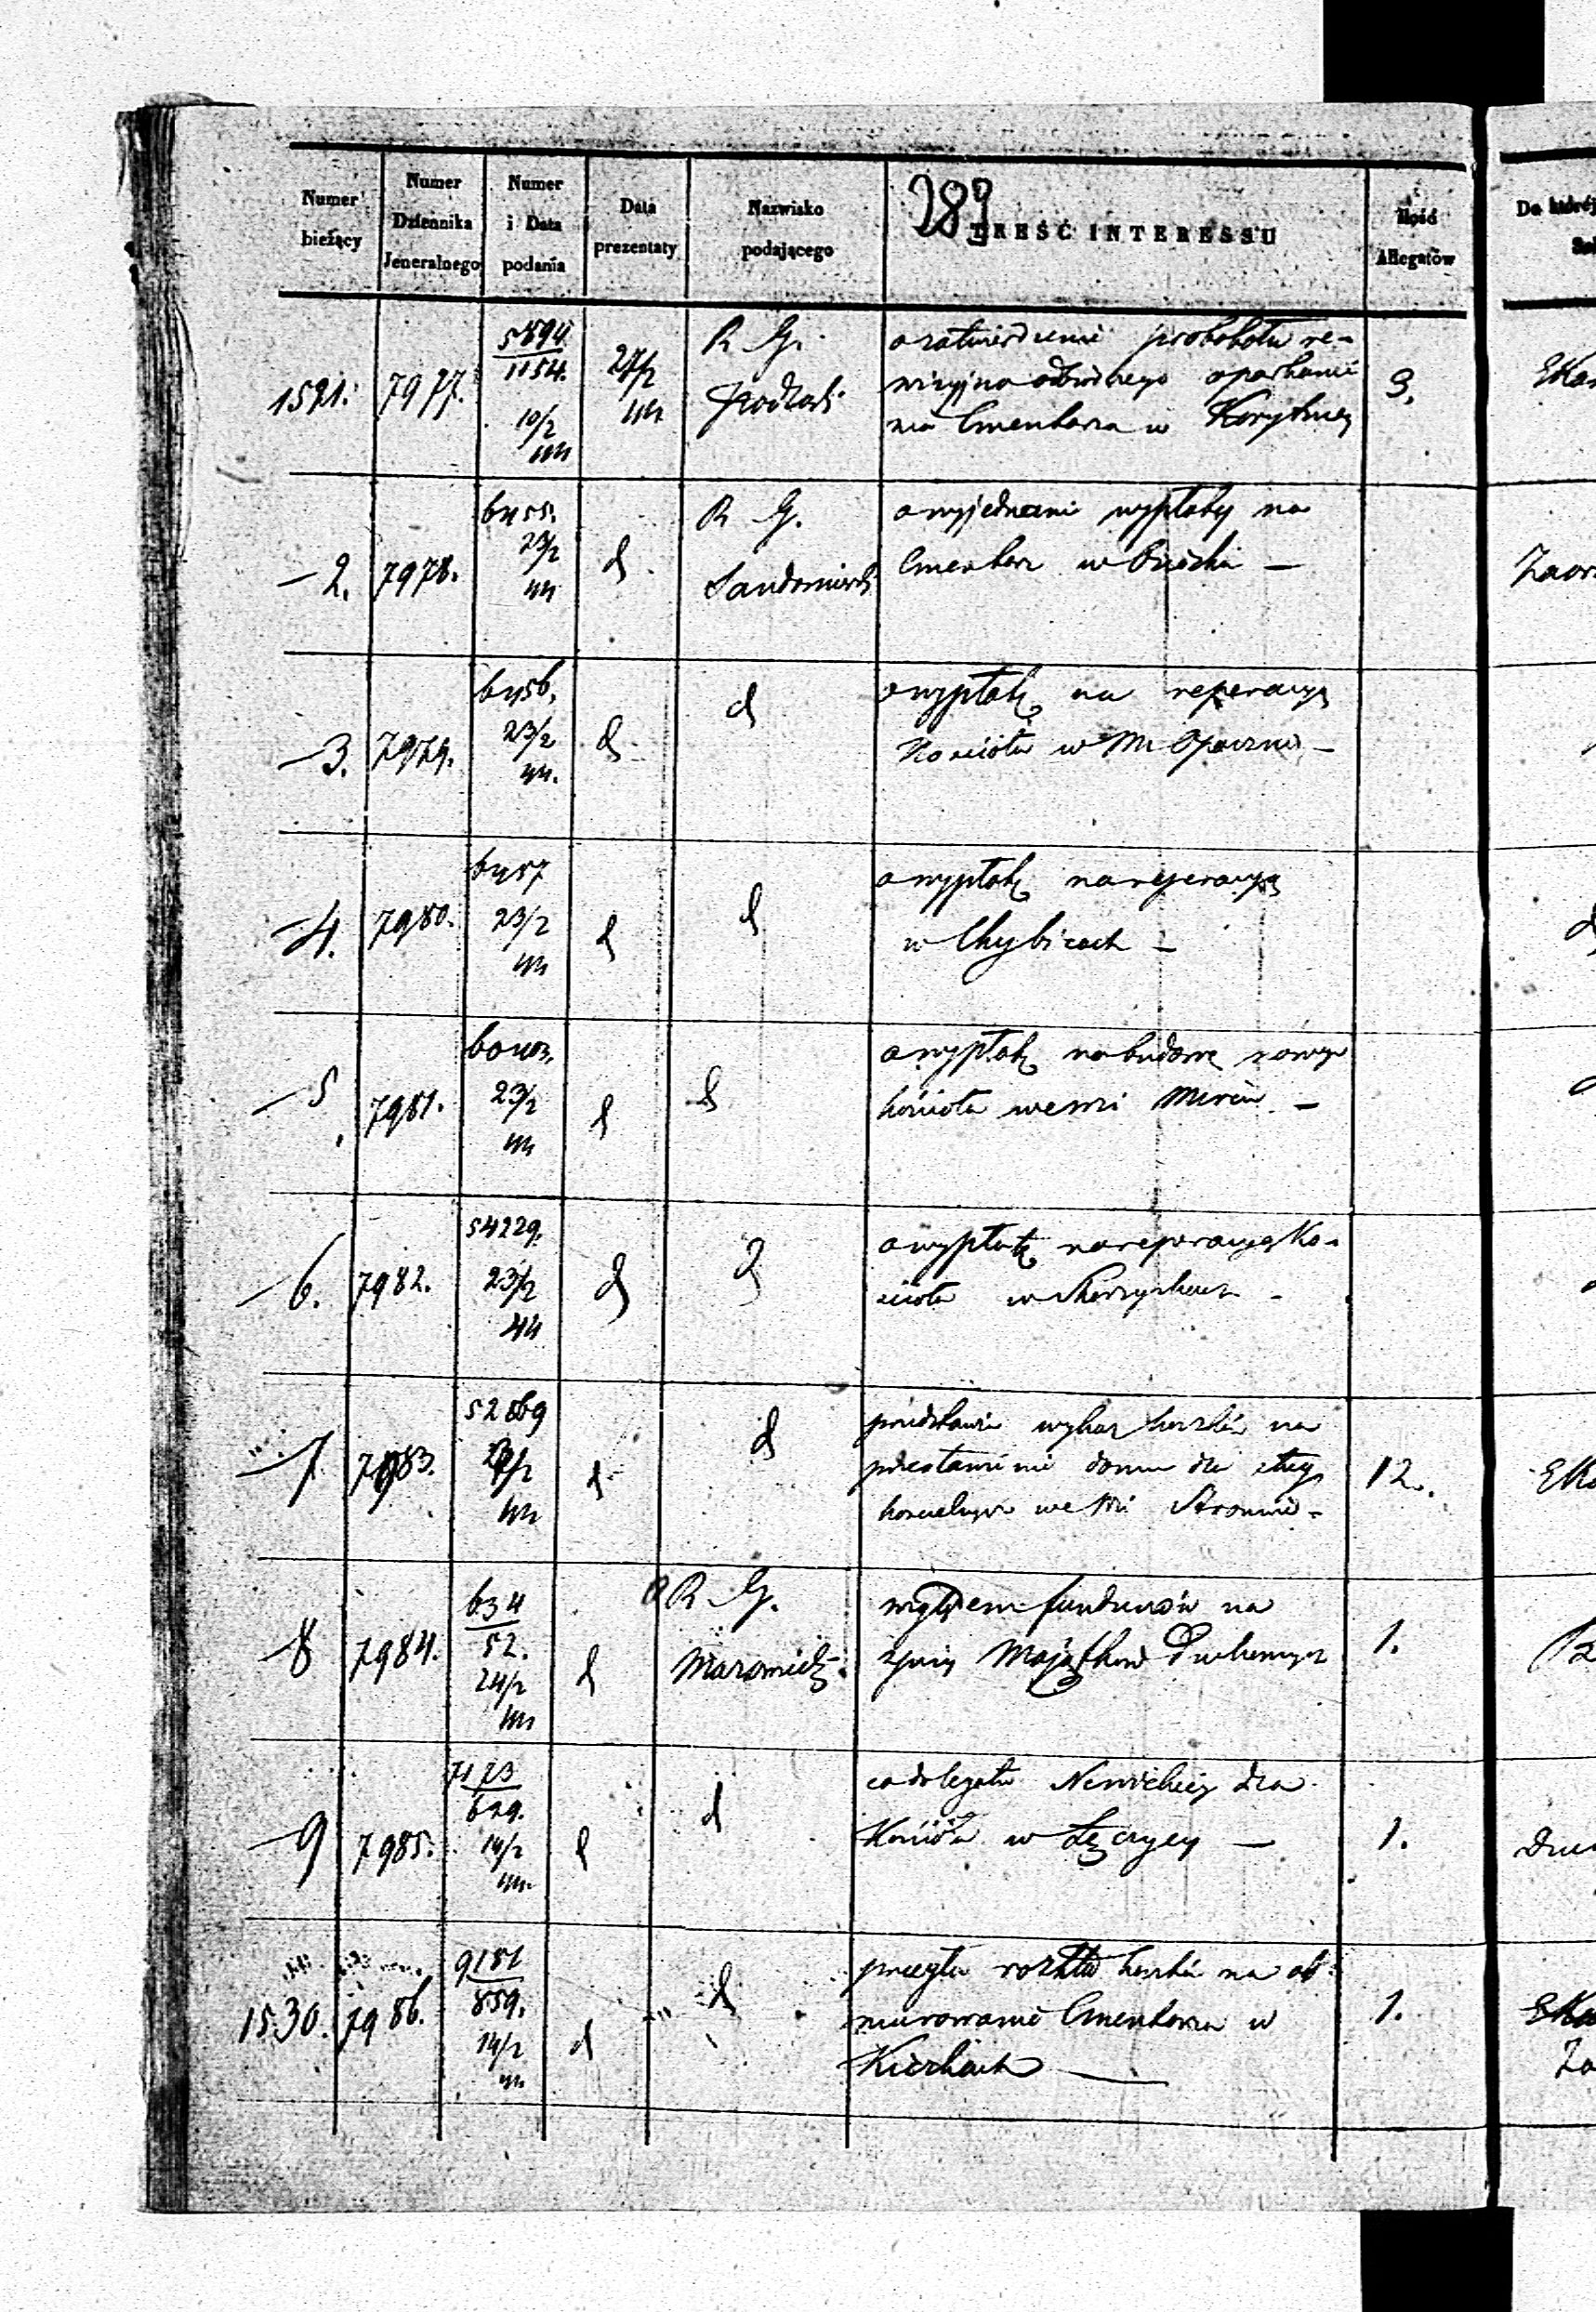 289
Numer bieżący
Numer Dziennika Jeneralnego
Numer i Data podania
Data prezentaty
Nazwisko podającego
TREŚĆ INTERESSU
Ilość Allegatów
Do której
1521. 7977. 5894/1154. 10/2 44 27/2 44 R G. Podlaski
o zatwierdzenie protokołu re-
wizyjno odbiorczego oparkanie
nia Cmentarza w Korytnicy
3.
—2. 7978. 6455. 23/2 44 d R G. Sandomierski
o wyjednanie wypłaty na
Cmentarz w
Zaw
—3. 7979. 6456. 23/2 44. d d
o wypłatę na reperacyą
Kościoła w M. Opocznie —
—4. 7980. 6457 23/2 44 d d
o wypłatę na reperacyą
w Chybicach —
—5. 7981. 23/2 44 d d
o wypłatę na budowę nowego
kościoła we wsi Mircu —
—6. 7982. 54229. 23/2 44 d d
o wypłatę na reperacyą Ko-
ścioła w
—7. 7983. 52869 44 d d
przedstawia wykaz kosztów na
postawienie domu dla sług
kościelnych we wsi Stromiec —
12.
—8 7984. 634/52. 24/2 44 d R G. Mazowiecki
względem funduszów na
Majątków Duchownych
1.
—9 7985. 7173/629. 14/2 44 d d
co do legatu dla
Kościoła w Łęczycy —
1.
1530. 7986. 9181/859. 14/2 44 d d
przesyła rozkład kosztów na ob-
murowanie Cmentarza w
—
1.